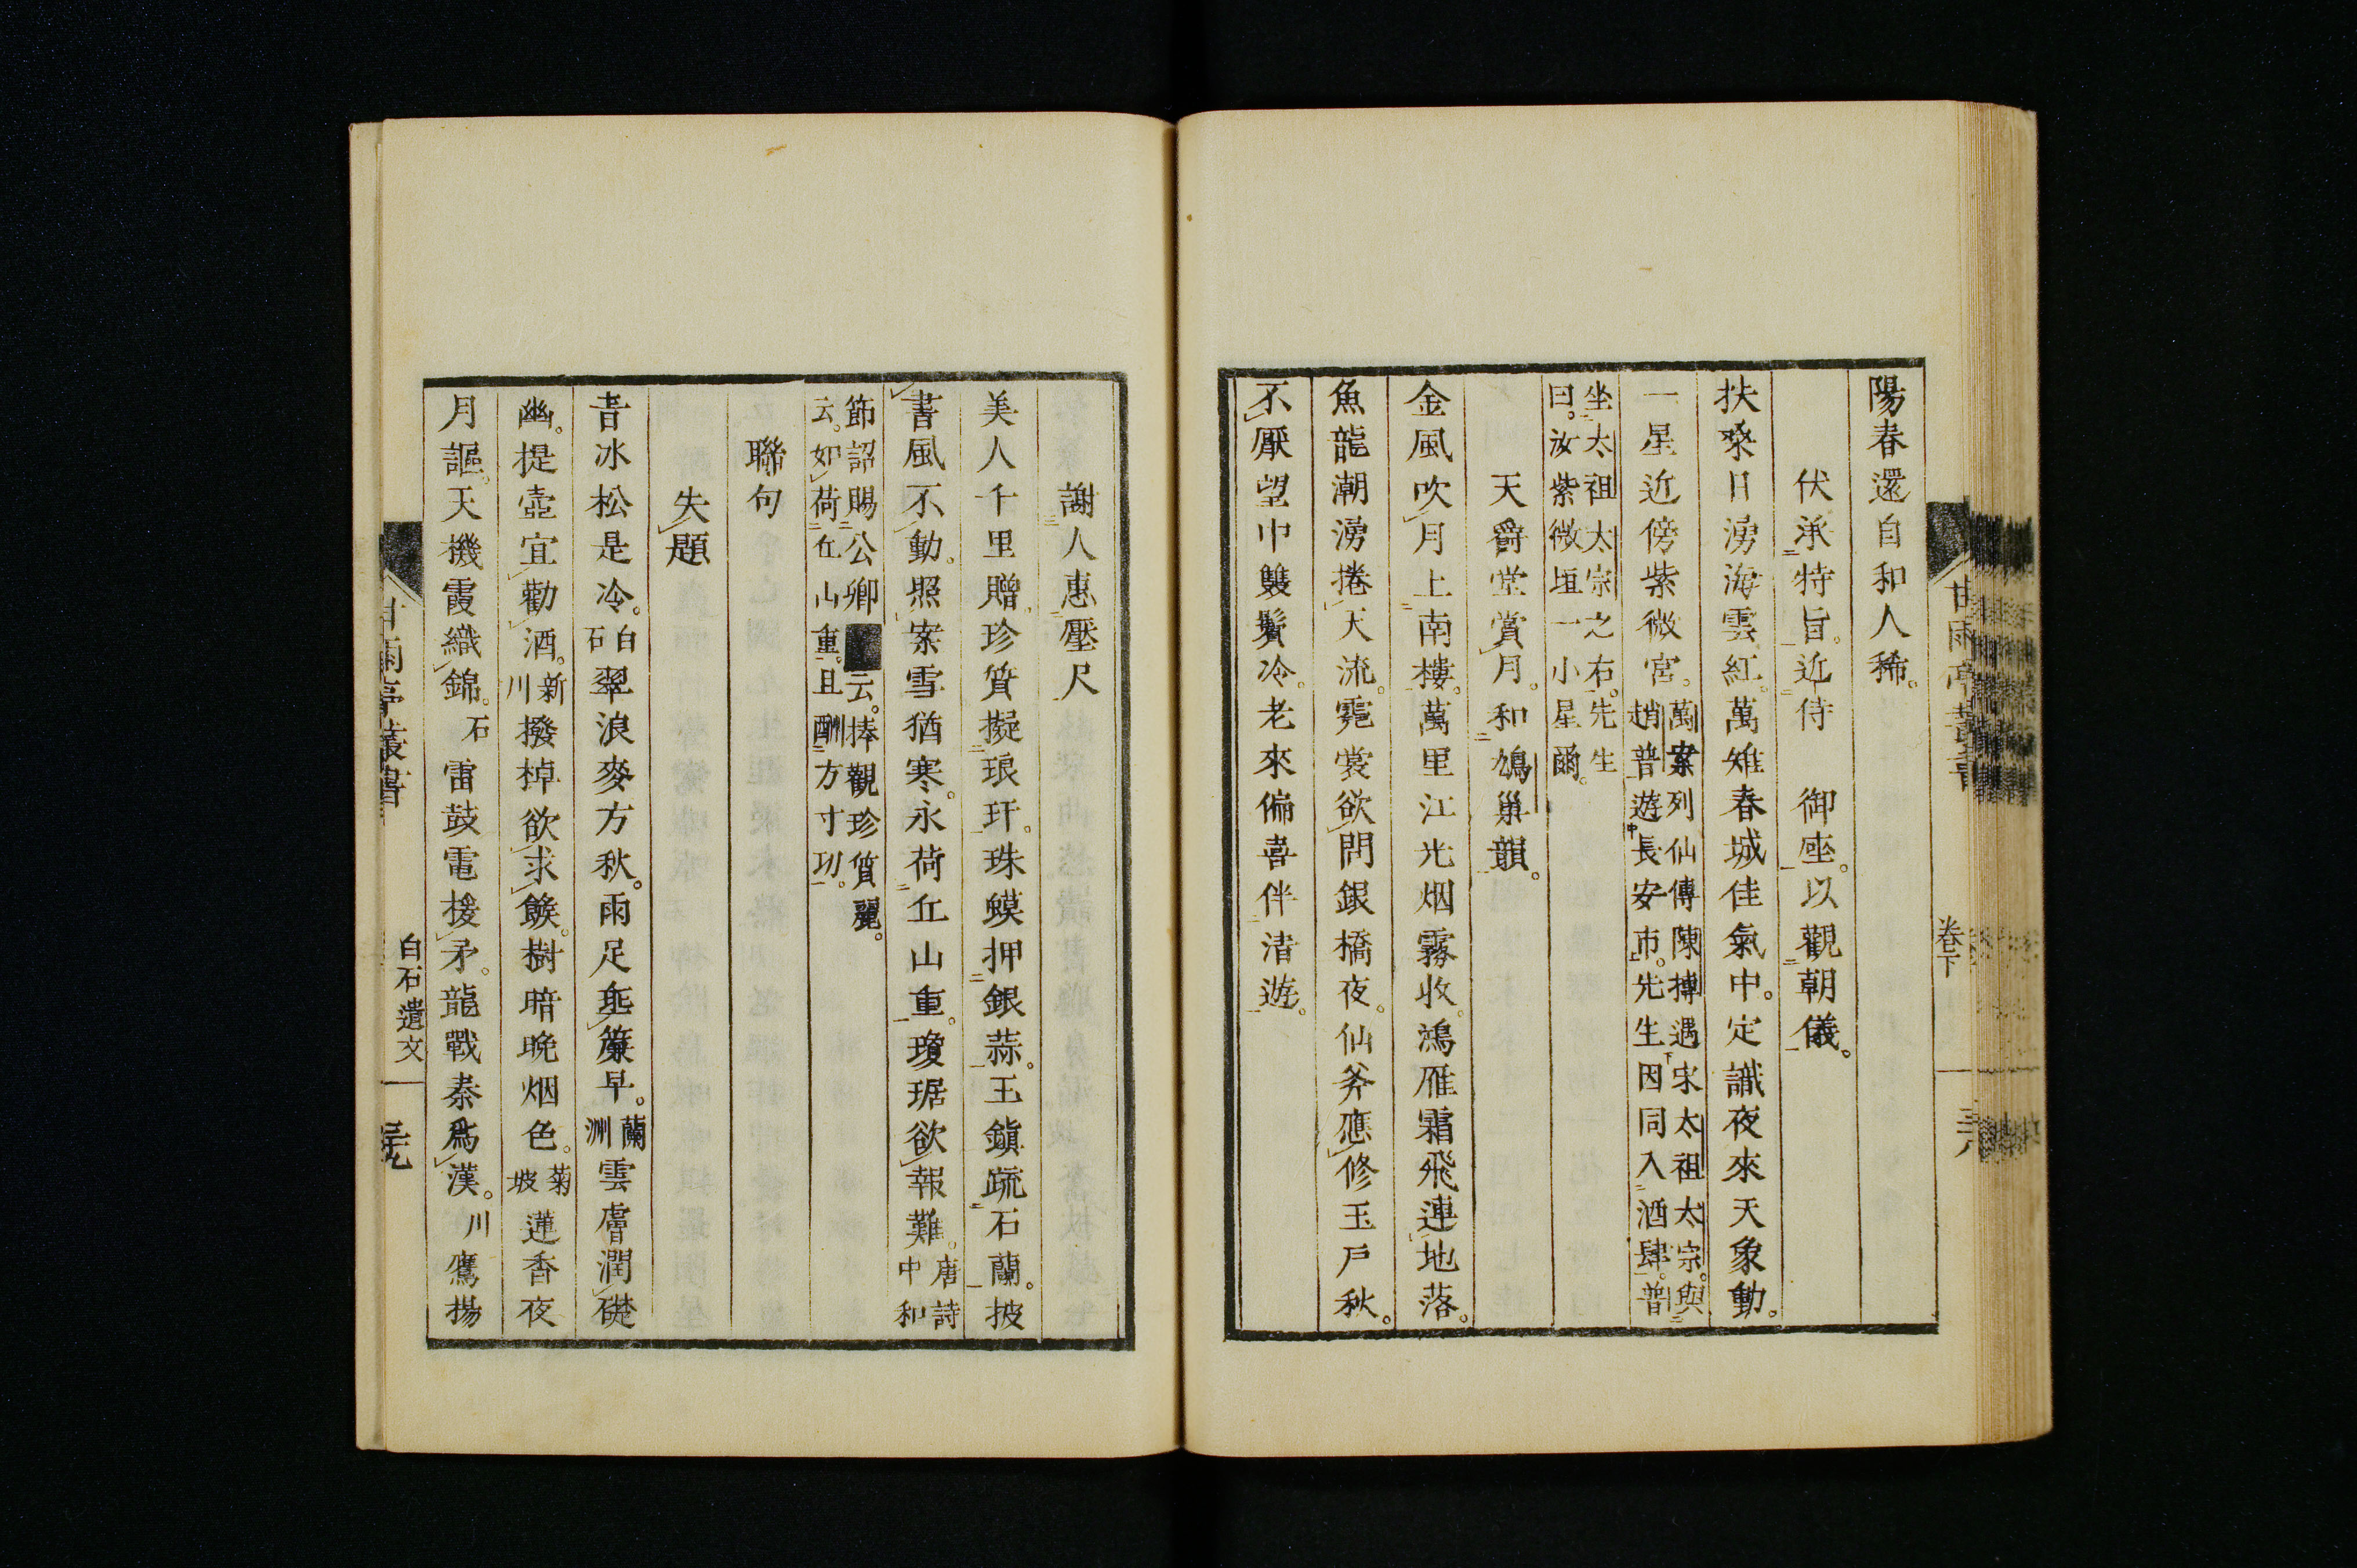 陽春還自和人稀。
伏承特旨。近侍　御座。以觀朝儀。
扶桑日湧海雲紅。萬雉春城佳氣中。定識夜來天象動。
一星近傍紫微宮。萬案列仙傳陳摶遇宋太祖太宗。與趙普遊長安市。先生因同入酒肆。普
坐太祖太宗之右。先生曰。汝紫微垣一小星爾。
天爵堂賞月。和鳩巢韻。
金風吹月上南樓。萬里江光烟霧收。鴻雁霜飛連地落。
魚龍潮湧捲天流。霓裳欲問銀橋夜。仙斧應修玉戶秋。
不厭望中雙鬢冷。老來偏喜伴清遊。
甘雨亭叢書　卷下
謝人惠壓尺
美人千里贈。珍質擬琅玕。珠蟆押銀蒜。玉鎭疏石蘭。披
書風不動。照案雪猶寒。永荷丘山重。瓊琚欲報難。唐詩中和
節詔賜公卿云。捧觀珍質麗。云。如荷丘山重。且酬方寸功。
聯句
失題
音冰松是冷。白石翠浪麥方秋。雨足垂簾早。蘭洲雲膚潤礎
幽。提壺宜勸酒。新川撥棹欲求餱。樹暗晚烟色。菊坡蓮香夜
月謳。天機霞織錦。石雷鼓電援矛。龍戰秦爲漢。川鷹揚
甘雨亭叢書　白石遺文